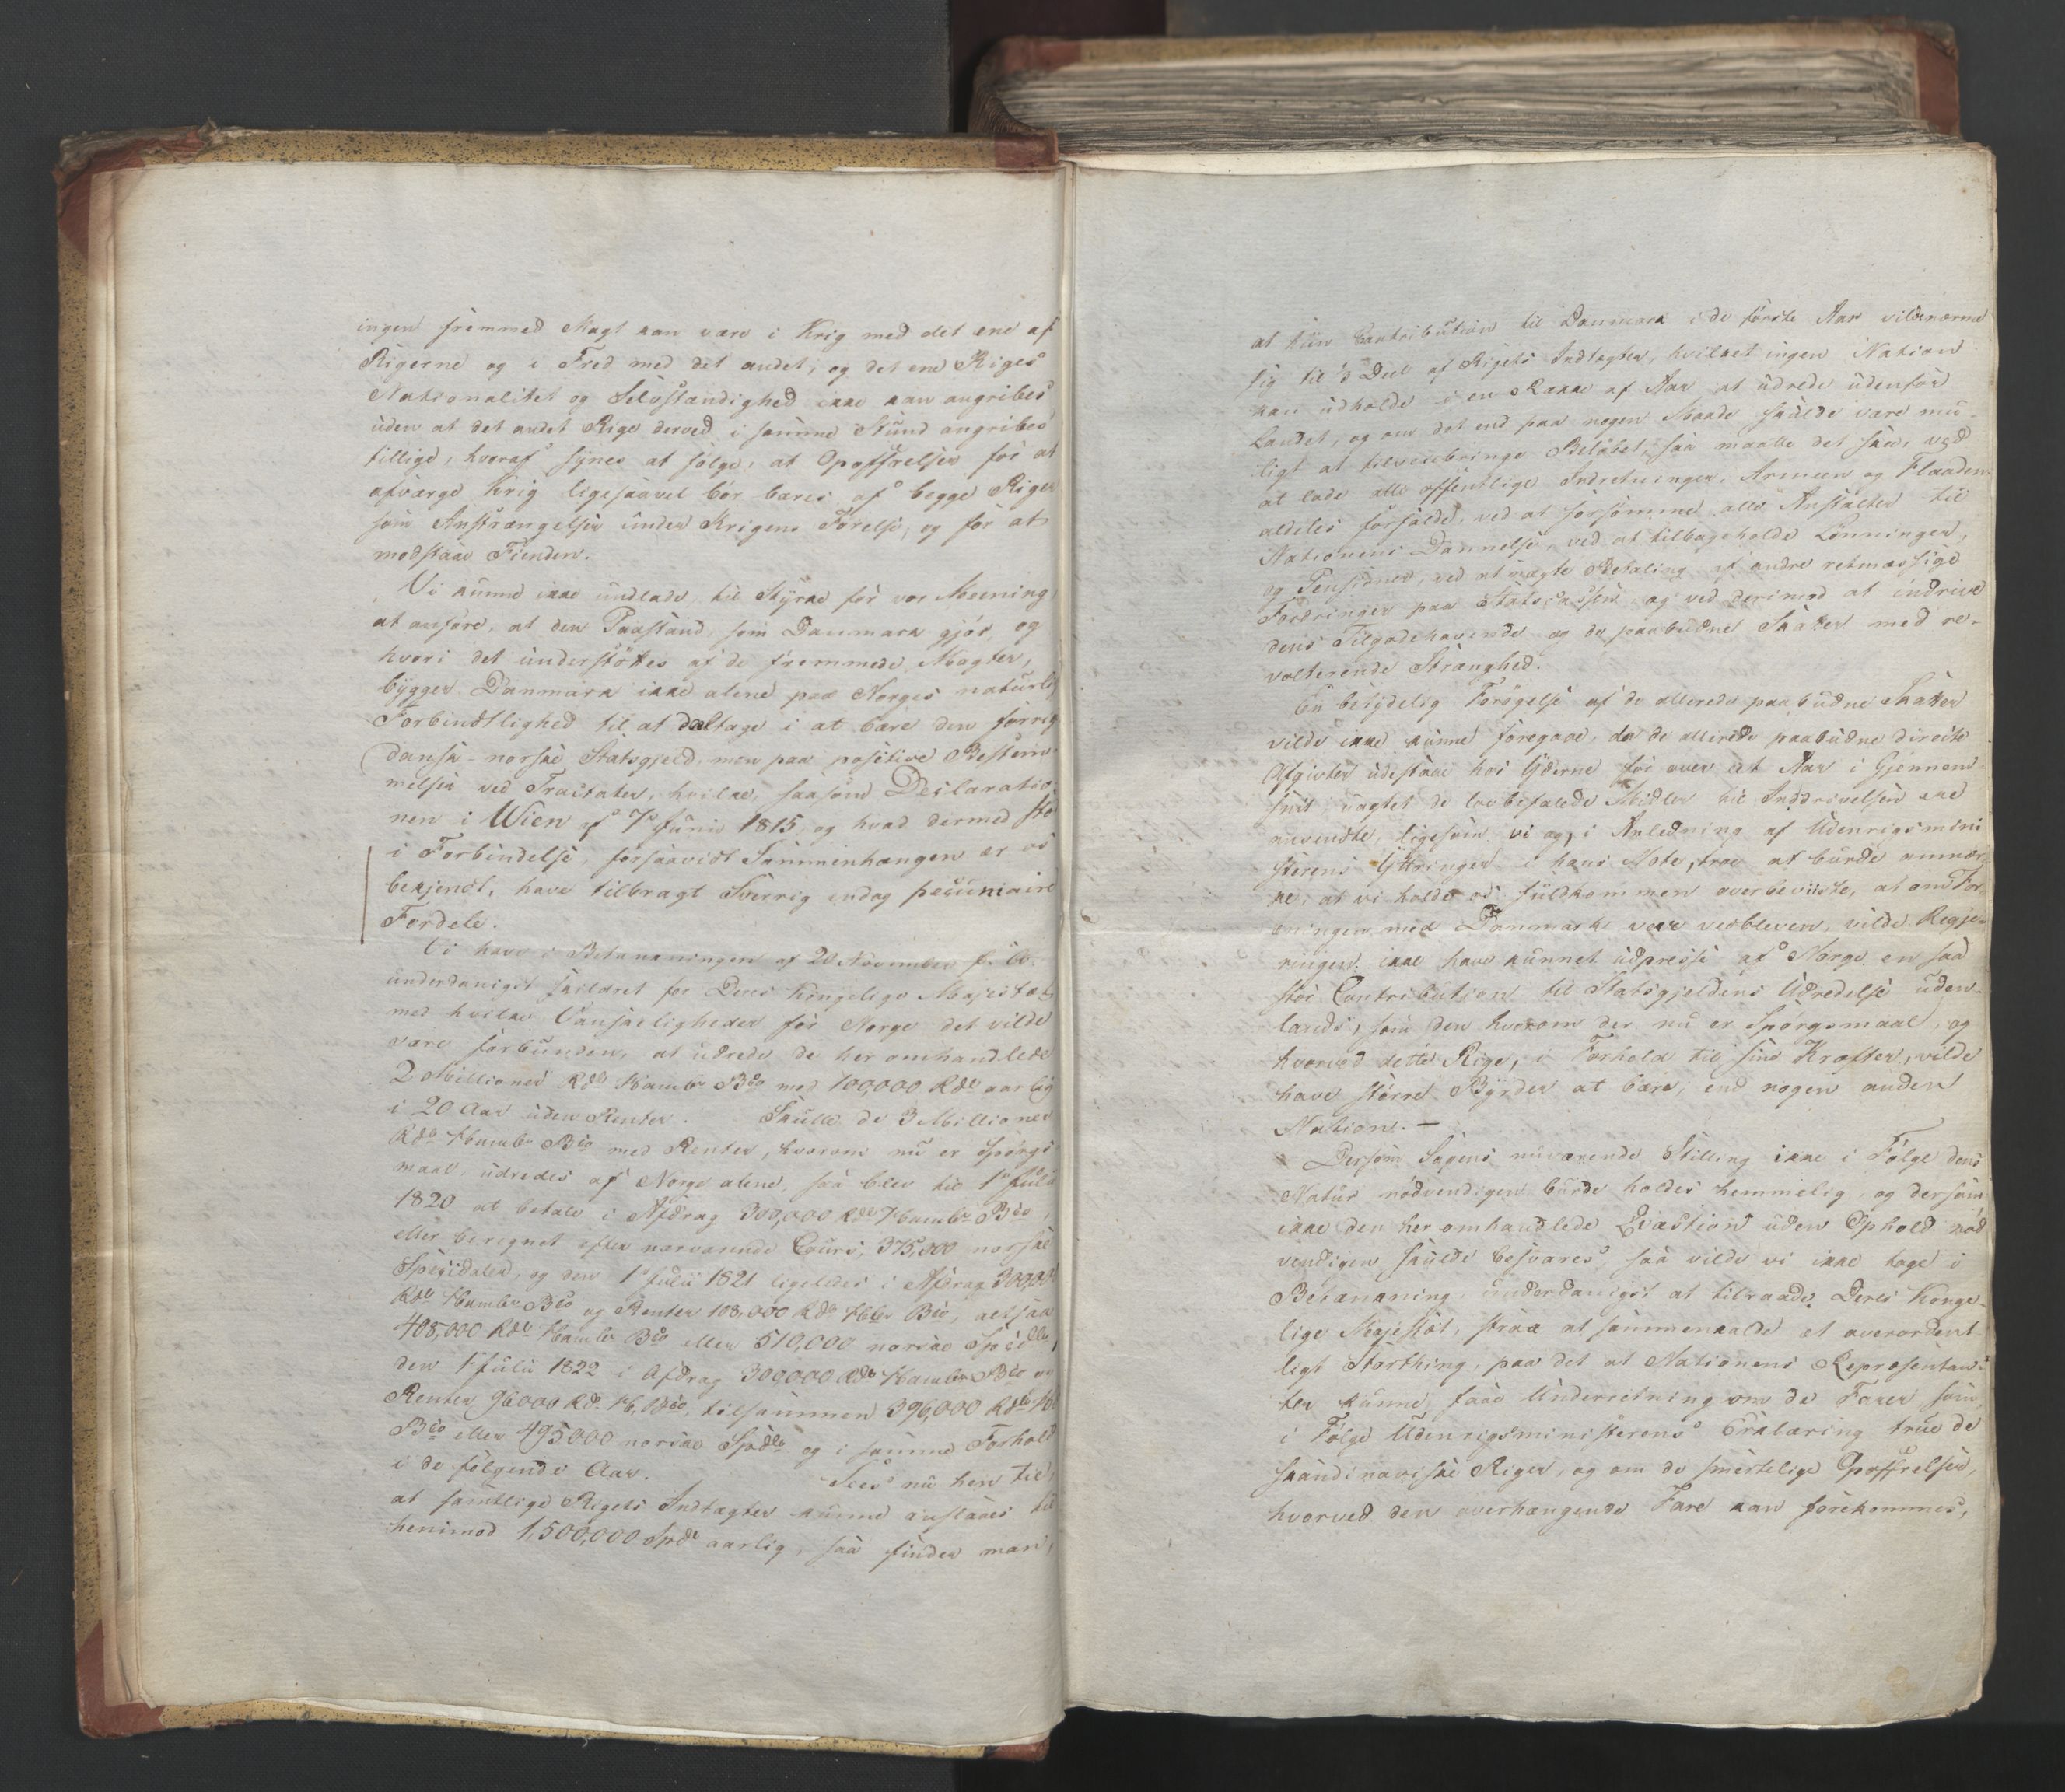 ingen fremmed Magt kan være i Krig med det ene af
Rigerne og i Fred med det andet, og det ene Riges
Nationalitet og Selvstændighed ikke kan angribes
uden at det andet Rige derved i samme Stund angribes
tillige, hvoraf synes at følge, at Opoffrelser for at
afværge Krig ligesaavel bør bæres af begge Riger
som Anstrængelser under Krigens Førelse, og for at
modstaae Fienden.
Vi kunne ikke undlade, til Styrke for vor Meening
at anføre, at den Paastand, som Danmark gjør, og
hvori det understøttes af de fremmede Magter,
bygger Danmark ikke alene paa Norges naturlig
Forbindtlighed til at deltage i at bære den forrige
dansk-norske Statsgjeld, men paa positive Bestem-
melser ved Tractater, hvilke, saasom Declaratio-
nen i Wien af 7de Junii 1815, og hvad dermed staaer
i Forbindelse, forsaavidt Sammenhængen er os
bekjendt, have tilbragt Sverrig endog pecuniaire
Fordele.
Vi have i Betænkningen af 20 November f. A.
underdanigst skildret for Deres Kongelige Majestæt,
med hvilke Vanskeligheder for Norge det vilde
være forbunden, at udrede de her omhandlede
2 Millioner Rdlr Hambr Bco med 100,000 Rdlr aarlig
i 20 Aar uden Renter. Skulle de 3 Millioner
Rdlr Hambr Bco med Renter, hvorom nu er Spørgs-
maal, udredes af Norge alene, saa blev til 1ste Julii
1820 at betale i Afdrag 300,000 Rdlr Hambr Bco,
eller beregnet efter nærværende Cours, 375,000 norske
Speciedaler, og den 1ste Julii 1821 ligeledes i Afdrag 300,000
Rdlr Hambr Bco og Renter 108,000 Rdlr Hbr Bco, altsaa
408,000 Rdlr Hambr Bco eller 510,000 norske Spedlr,
den 1ste Julii 1822 i Afdrag 300,000 Rdlr Hambr Bco og
Renter 96000 Rdlr Hb. Bco, tilsammen 396,000 Rdlr Hb
Bco eller 495000 norske Spdlr og i samme Forhold
i de følgende Aar. Sees nu hen til,
at samtlige Rigets Indtægter kunne anslaaes til
henimod 1,500,000 Spdlr aarlig, saa finder man,
at kun Contribution til Danmark i de første Aar vilde nærme
sig til 1/3 Deel af Rigets Indtægter, hvilket ingen Nation
kan udholde i en Række af Aar at udrede udenfor
Landet, og om det end paa nogen Maade skulde være mu-
ligt at tilveiebringe Beløbet, saa maatte det skee, ved
at lade alle offentlige Indretninger, Armeen og Flaaden
aldeles forfalde, ved at forsømme alle Anstalter til
Nationens Dannelse, ved at tilbageholde Lønninger,
og Pensioner, ved at nægte Betaling af andre retmæssige
Fordringer paa Statscassen og ved derimod at inddrive
dens Tilgodehavende og de paabudne Skatter med re-
volterende Strænghed.
En betydelig Forøgelse af de allerede paabudne Skatter
vilde ikke kunne foregaae, da de allerede paabudne directe
Afgivter udestaae hos Yderne for over eet Aar i Gjennem-
snit uagtet de lovbefalede Midler til Inddrivelsen ere
anvendte, ligesom vi og, i Anledning af Udenrigsmini-
sterens Yttringer i hans Note, troe at burde anmær-
ke, at vi holde os fuldkommen overbeviiste, at om For-
eningen med Danmark var vedbleven, vilde Regje-
ringen ikke have kunnet udpresse af Norge en saa
stor Contribution til Statsgjeldens Udredelse uden-
lands, som den hvorom der nu er Spørgsmaal, og
hvorved dette Rige, i Forhold til sine Kræfter, vilde
have større Byrder at bære, end nogen anden
Nation. -
Dersom Sagens nuværende Stilling ikke i Følge dens
Natur nødvendigen burde holdes hemmelig, og dersom
ikke den her omhandlede Qvæstion uden Ophold nød-
vendigen skulde besvares, saa vilde vi ikke tage i
Betænkning, underdanigst at tilraade Deres Konge-
lige Majestæt, strax at sammenkalde et overordent-
ligt Storthing, paa det at Nationens Repræsentan-
ter kunne faae Underretning om de Farer som,
i Følge Udenrigsministerens Erklæring true de
skandinaviske Riger, og om de smertelige Opoffrelser,
hvorved den overhængende Fare kan forekommes,